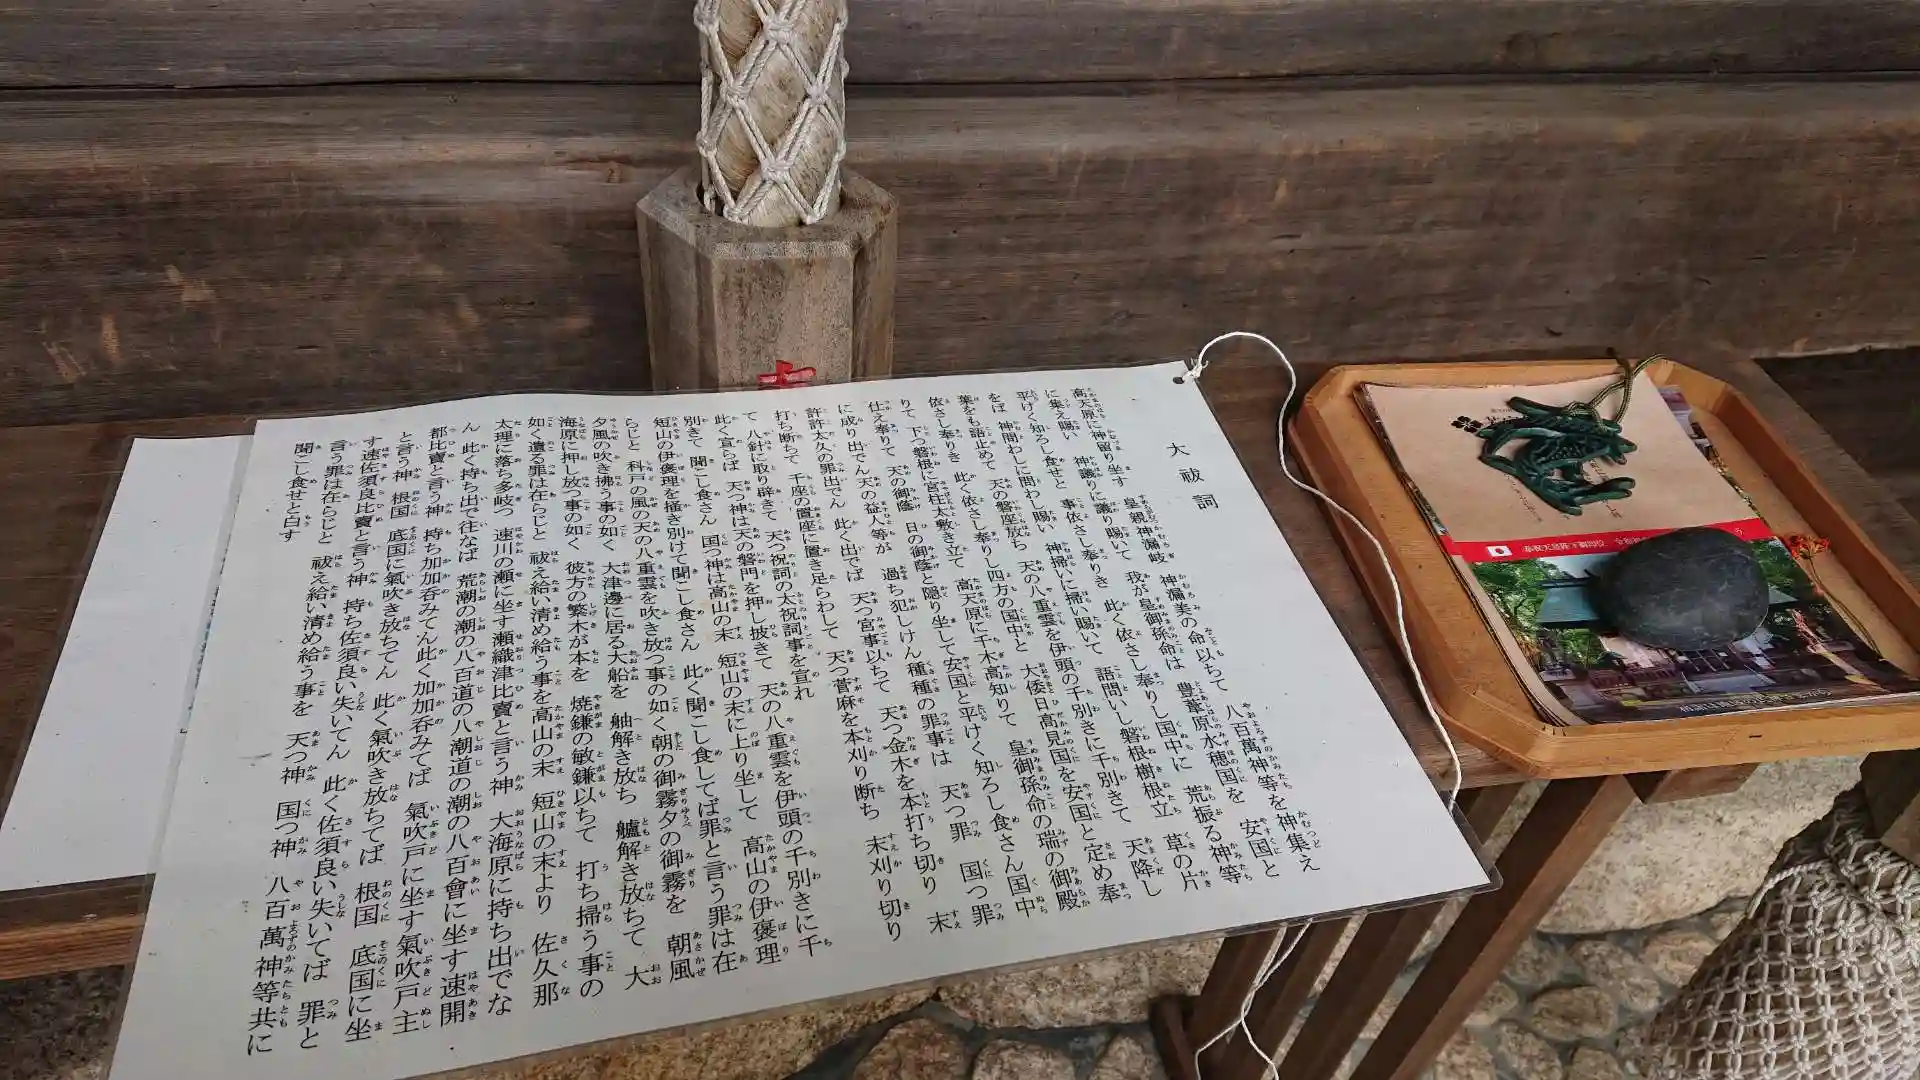 大祓詞
高天原に神留り坐す 皇親神漏岐 神漏美の命以ちて 八百萬神等を神集え
に集え賜い 神議りに議り賜いて 我が皇御孫命は 豊葦原水穂国を 安国と
平けく知ろし食せと 事依さし奉りき 此く依さし奉りし国中に 荒振る神等
をば 神問わしに問わし賜い 神掃いに掃い賜いて 語問いし磐根樹根立 草の片
葉をも語止めて 天の磐座放ち 天の八重雲を伊頭の千別きに千別きて 天降し
依さし奉りき 此く依さし奉りし四方の国中と 大倭日高見国を安国と定め奉
りて 下つ磐根に宮柱太敷き立て 高天原に千木高知りて 皇御孫命の瑞の御殿
仕え奉りて 天の御蔭 日の御蔭と隠り坐して安国と平けく知ろし食さん国中
に成り出でん天の益人等が 過ち犯しけん種種の罪事は 天つ罪 国つ罪
許許太久の罪出でん 此く出でば 天つ宮事以ちて 天つ金木を本打ち切り 末
打ち断ちて 千座の置座に置き足らわして 天つ菅麻を本刈り断ち 末刈り切り
て 八針に取り辟きて 天つ祝詞の太祝詞事を宣れ
此く宣らば 天つ神は天の磐門を押し披きて 天の八重雲を伊頭の千別きに千
別きて 聞こし食さん 国つ神は高山の末 短山の末に上り坐して 高山の伊褒理
短山の伊褒理を掻き別けて聞こし食さん 此く聞こし食してば罪と言う罪は在
らじと 科戸の風の天の八重雲を吹き放つ事の如く朝の御霧夕の御霧を 朝風
夕風の吹き拂う事の如く 大津邊に居る大船を 舳解き放ち 艫解き放ちて 大
海原に押し放つ事の如く 彼方の繁木が本を 焼鎌の敏鎌以ちて 打ち掃う事の
如く遺る罪は在らじと 祓え給い清め給う事を高山の末 短山の末より 佐久那
太理に落ち多岐つ 速川の瀬に坐す瀬織津比賣と言う神 大海原に持ち出でな
ん 此く持ち出で往なば 荒潮の潮の八百道の八潮道の潮の八百會に坐す速開
都比賣と言う神 持ち加加呑みてん此く加加呑みてば 氣吹戸に坐す氣吹戸主
と言う神 根国 底国に氣吹き放ちてん 此く氣吹き放ちてば 根国 底国に坐
す速佐須良比賣と言う神 持ち佐須良い失いてん 此く佐須良い失いてば 罪と
言う罪は在らじと 祓え給い清め給う事を 天つ神 国つ神 八百萬神等共に
聞こし食せと白す